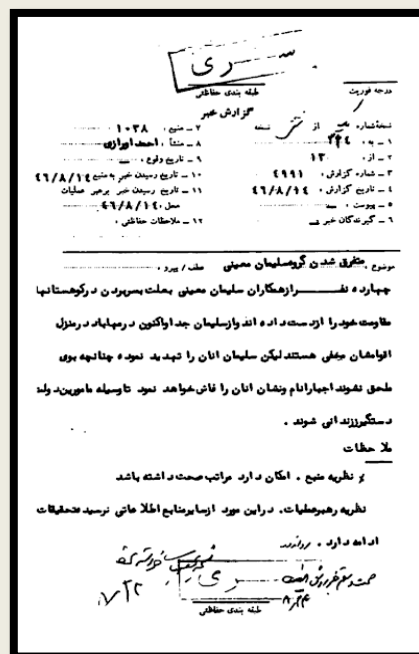 سری
طبقه بندی حفاظتی
درجه فوریت
گزارش خبر
نسخه شماره از نسخه
۱ ـ به : ۳۳۴
۲ ـ از : ۱۳۰
۳ ـ شماره گزارش : ۴۹۹۱
۴ ـ تاریخ گزارش : ۴۶/۸/۱۴
۵ ـ پیوست :
۶ ـ گیرندگان خبر
۷ ـ منبع : ۱۰۳۸
۸ ـ منشأ : احمد اورازی
۹ ـ تاریخ وقوع :
۱۰ ـ تاریخ رسیدن خبر به منبع ۴۶/۸/۱۴
۱۱ ـ تاریخ رسیدن خبر برهبر عملیات
محل : ۴۶/۸/۱۴
۱۲ ـ ملاحظات حفاظتی :
موضوع : متفرق شدن گروه سلیمان معینی عطف / پیرو :
چهارده نفر از همکاران سلیمان معینی بعلت بسربردن در کوهستانها
مقاومت خود را از دست داده اند و از سلیمان جدا و اکنون در مهاباد در منزل
اقوامشان مخفی هستند لیکن سلیمان انان را تهدید نموده چنانچه بوی
ملحق نشوند اجبارا نام ونشان انان را فاش خواهد نمود تا وسیله مامورین دولت
دستگیر زندانی شوند .
ملاحظات
نظریه منبع . امکان دارد مراتب صحت داشته باشد
نظریه رهبرعملیات . در این مورد از سایر منابع اطلاعاتی نرسیده تحقیقات
ادامه دارد .
سری
طبقه بندی حفاظتی